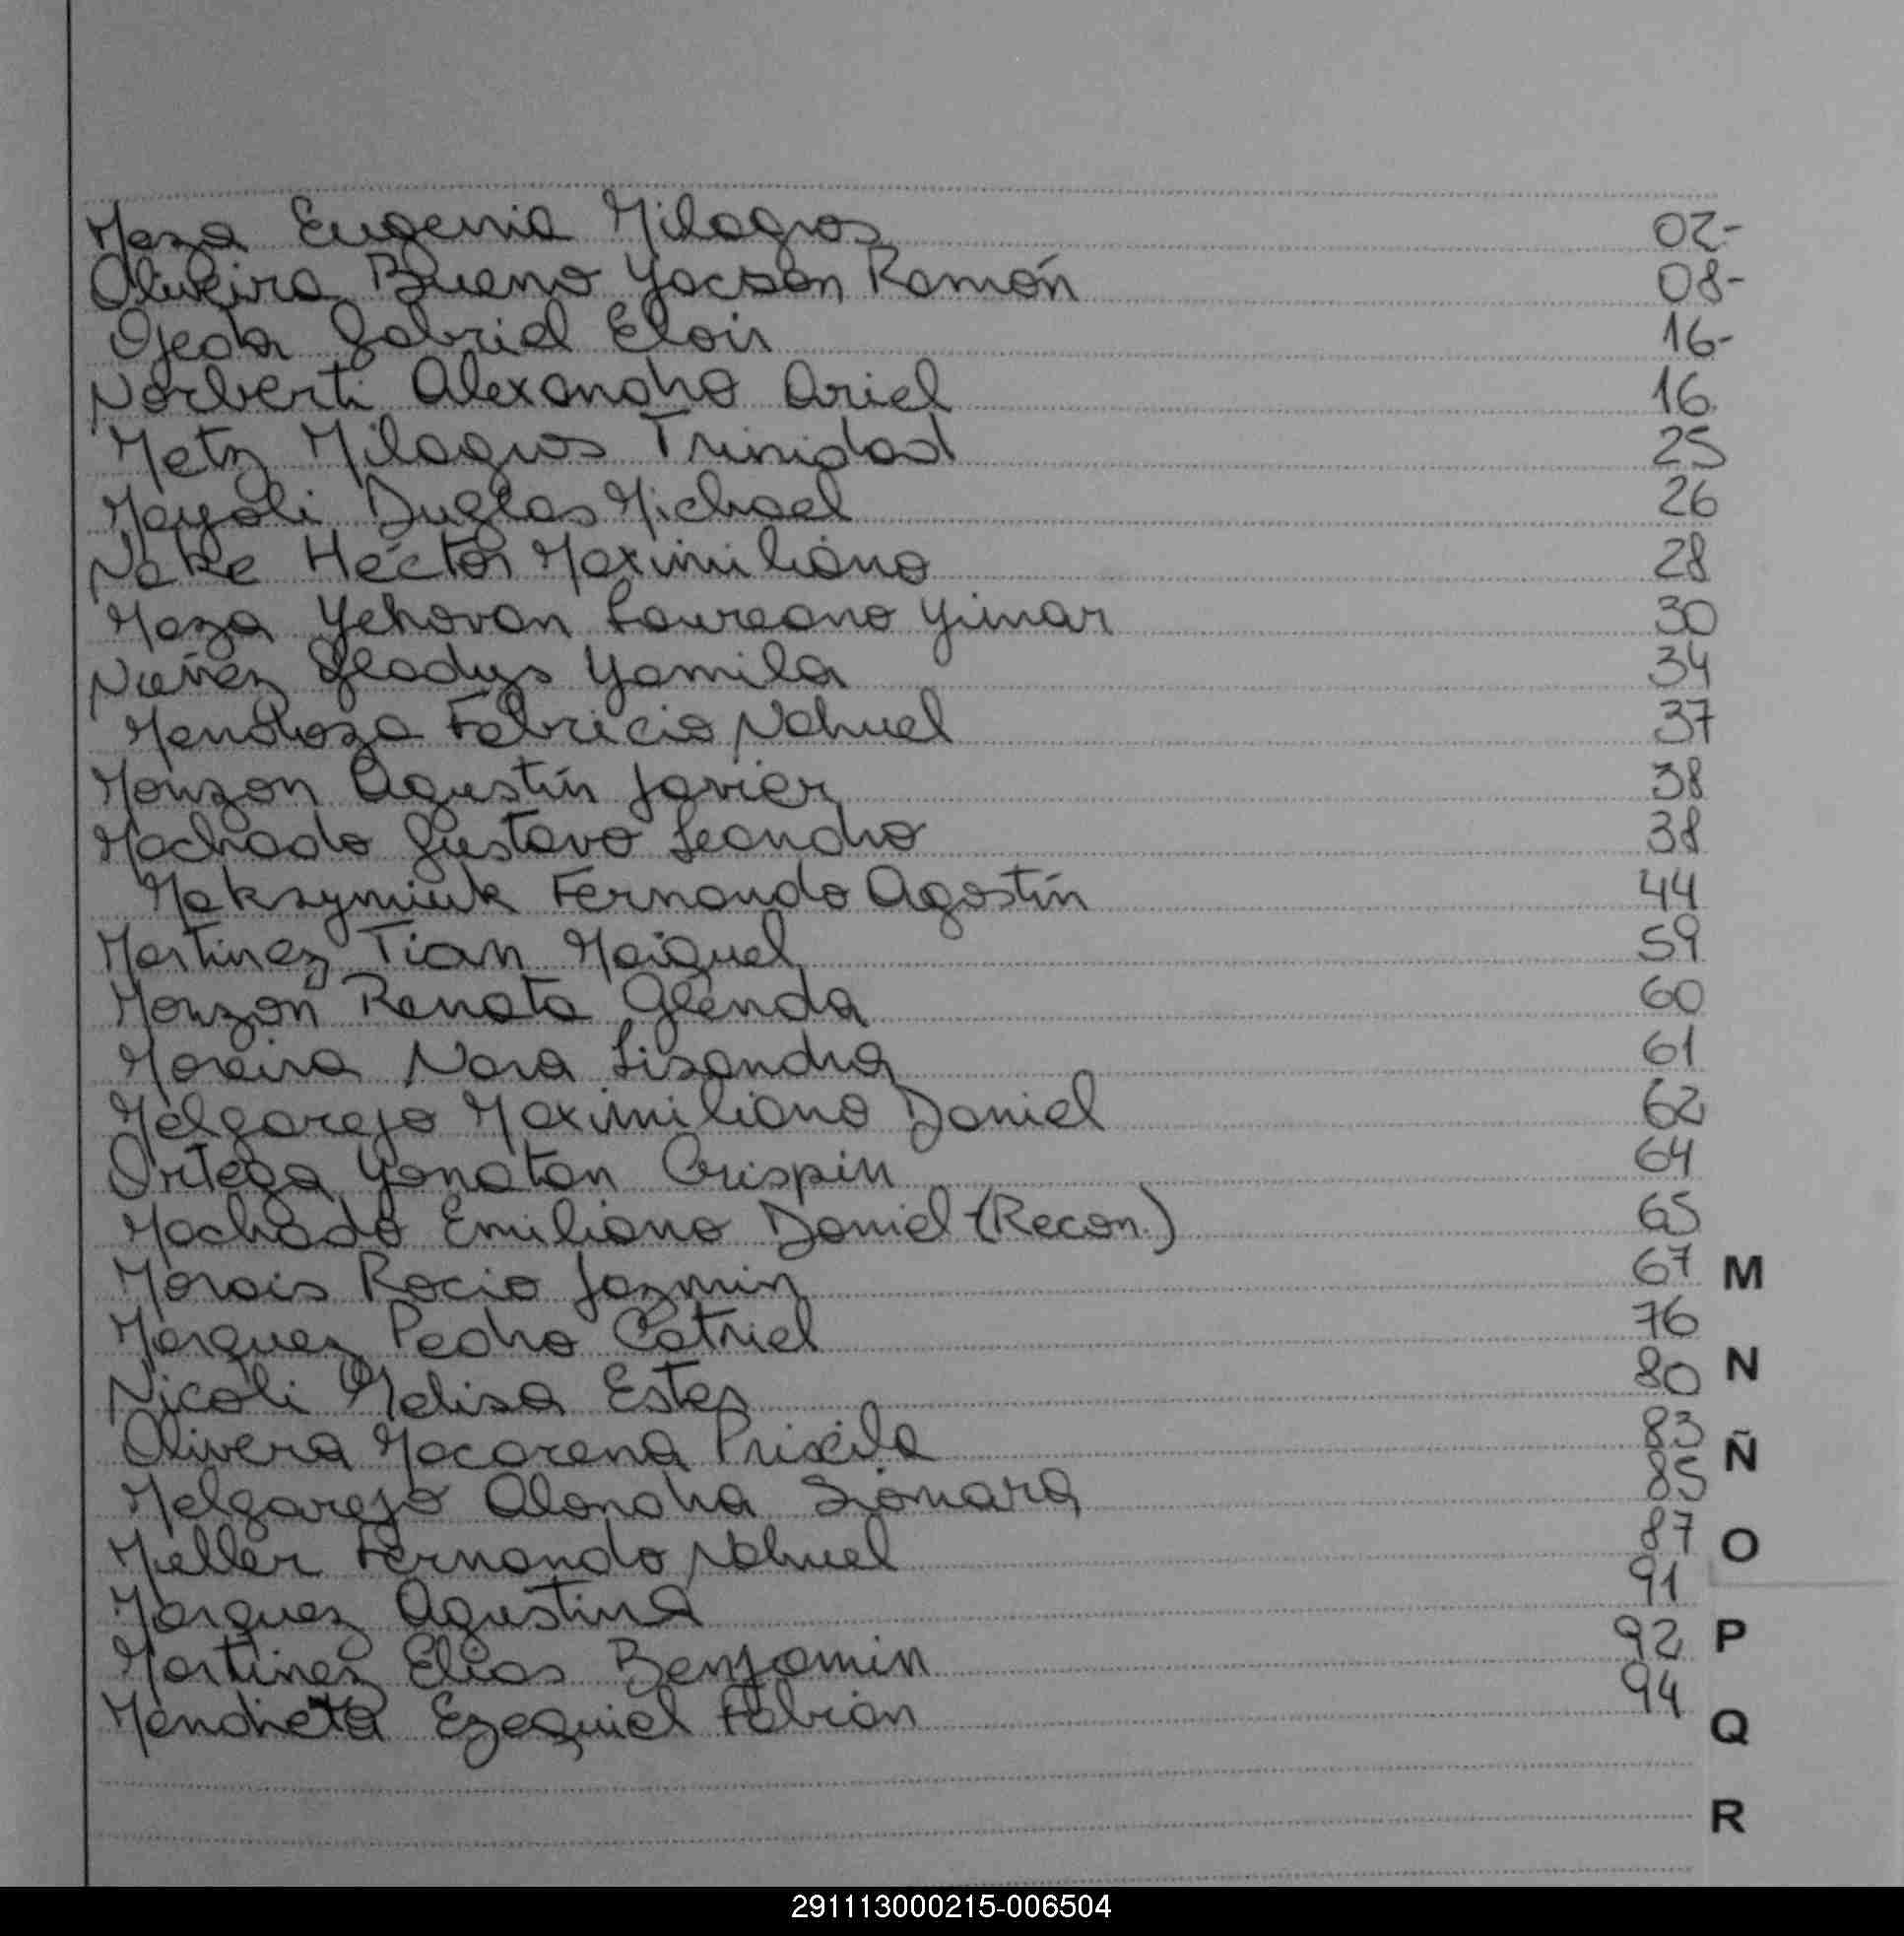 Meza Eugenia Milagros 02-
Oliveira Bueno Yacson Ramón 08-
Ojeda Gabriel Eloir 16-
Norberti Alexandro Ariel 16
Metz Milagros Trinidad 25
Mayoli Duglas Michael 26
Nake Héctor Maximiliano 28
Meza Yehovan Laureano Yimar 30
Nuñez Gladys Yamila 34
Mendoza Fabricio Nahuel 37
Monzon Agustín Javier 38
Machado Gustavo Leandro 38
Maksymiuk Fernando Agostín 44
Martinez Tian Maiquel 59
Monzón Renata Glenda 60
Moreira Nara Lisandra 61
Melgarejo Maximiliano Daniel 62
Ortega Yonatan Crispin 64
Machado Emiliano Daniel (Recon.) 65
Morais Rocio Jazmin 67 M
Marquez Pedro Catriel 76
Nicoli Melisa Ester 80 N
Olivera Macarena Priscila 83 Ñ
Melgarejo Alondra Siomara 85
Muller Fernando Nahuel 87 O
Marquez Agustina 91
Martinez Elias Benjamin 92 P
Mendieta Ezequiel Fabián 94
Q
R
291113000215-006504